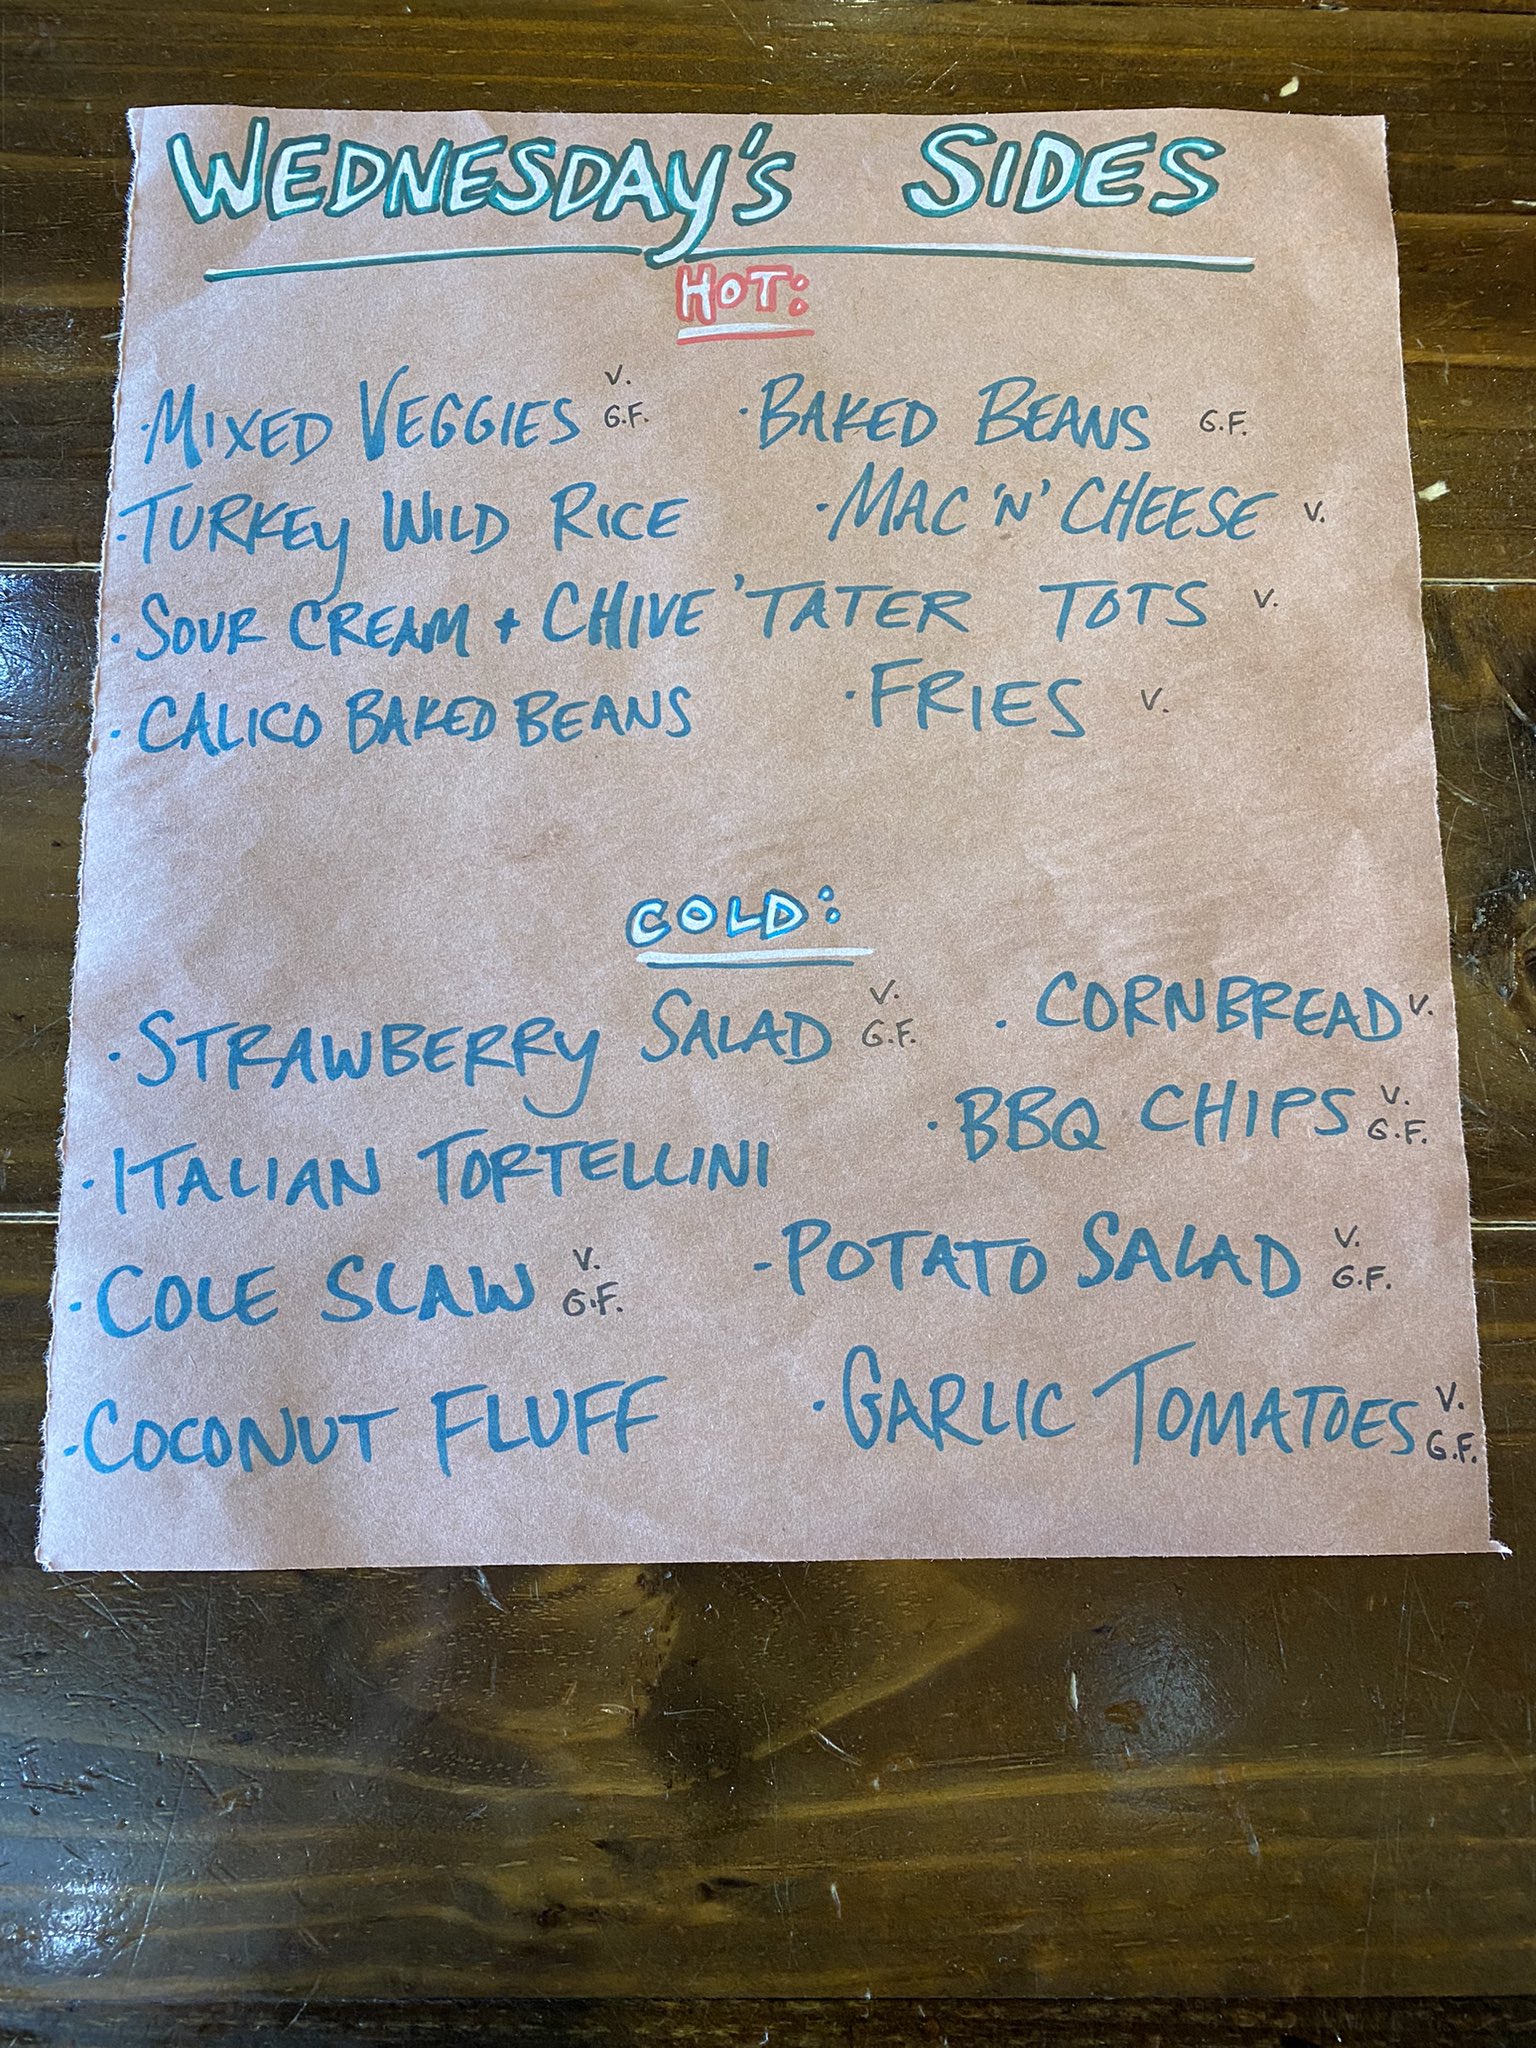 WEDNESDAY'S SIDES
HOT:
·MIXED VEGGIES V. G.F.
·BAKED BEANS G.F.
·TURKEY WILD RICE
·MAC 'N' CHEESE V.
·SOUR CREAM + CHIVE 'TATER TOTS V.
·CALICO BAKED BEANS
·FRIES V.
COLD:
·STRAWBERRY SALAD V. G.F.
·CORNBREAD V.
·BBQ CHIPS V. G.F.
·ITALIAN TORTELLINI
·COLE SLAW V. G.F.
·POTATO SALAD V. G.F.
·COCONUT FLUFF
·GARLIC TOMATOES V. G.F.